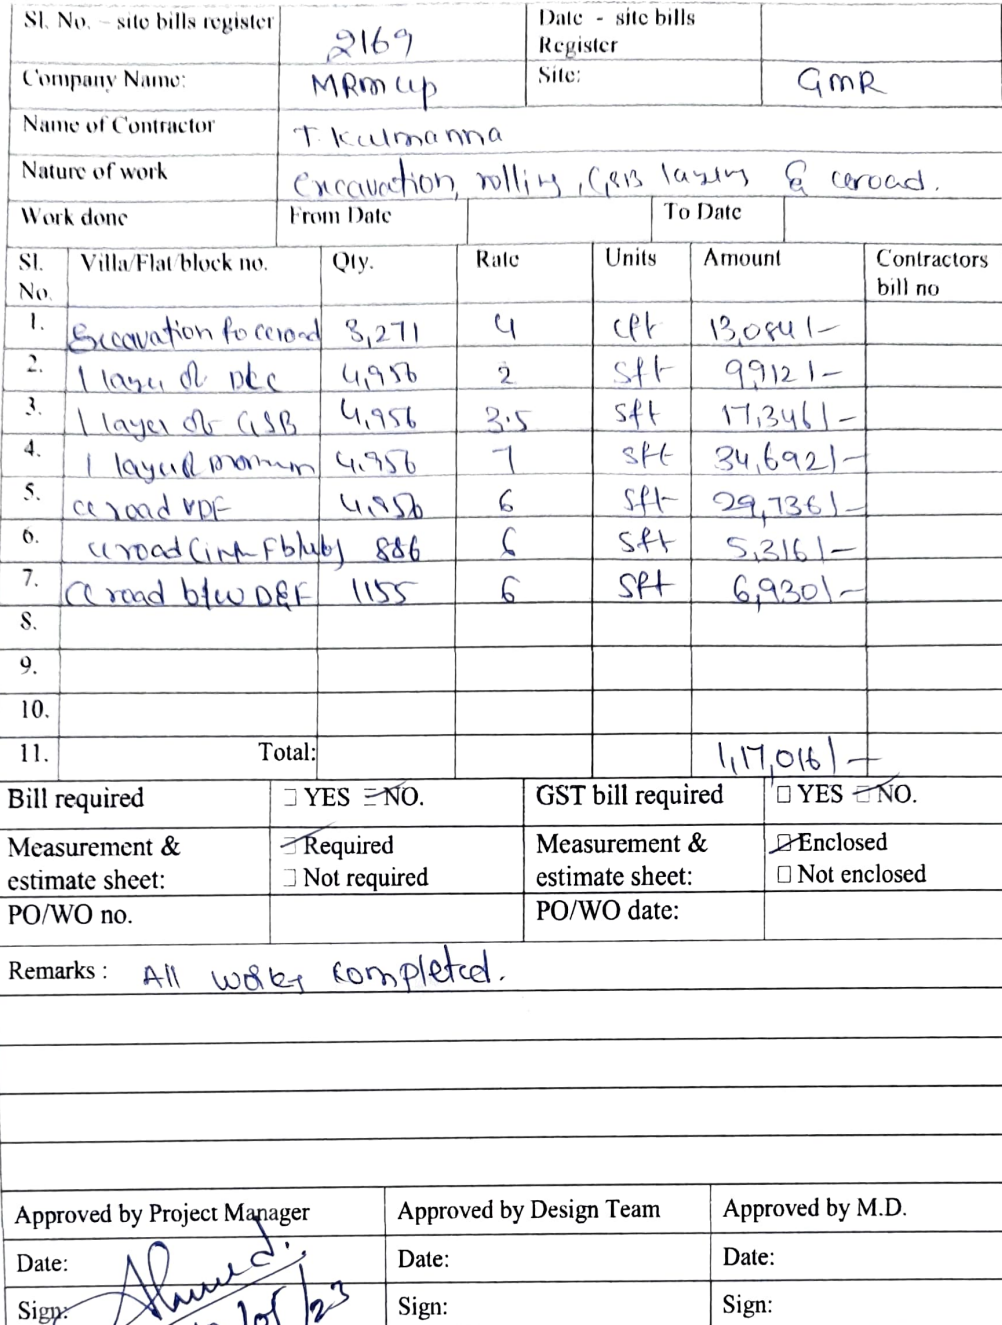 Sl. No. – site bills register 2169 Date - site bills Register
Company Name: MRM up Site: GMR
Name of Contractor T. Kulmanna
Nature of work Excavation, rolling, GSB laying & ccroad.
Work done From Date To Date
Sl. No. Villa/Flat/block no. Qty. Rate Units Amount Contractors bill no
1. Excavation fo ccroad 3,271 4 cft 13,084/-
2. 1 layer of 4,956 2 sft 9,912/-
3. 1 layer of GSB 4,956 3.5 sft 17,346/-
4. 1 layer 4,956 7 sft 34,692/-
5. cc road VDF 4,956 6 sft 29,736/-
6. cc road ( 886 6 sft 5,316/-
7. CC road b/w D&F 1155 6 sft 6,930/-
8.
9.
10.
11. Total: 1,17,016/-
Bill required YES NO. GST bill required YES NO.
Measurement & estimate sheet: Required Measurement & estimate sheet: Enclosed
Not required Not enclosed
PO/WO no. PO/WO date:
Remarks : All works completed.
Approved by Project Manager Approved by Design Team Approved by M.D.
Date: Date: Date:
Sign: Sign: Sign:
/05/23